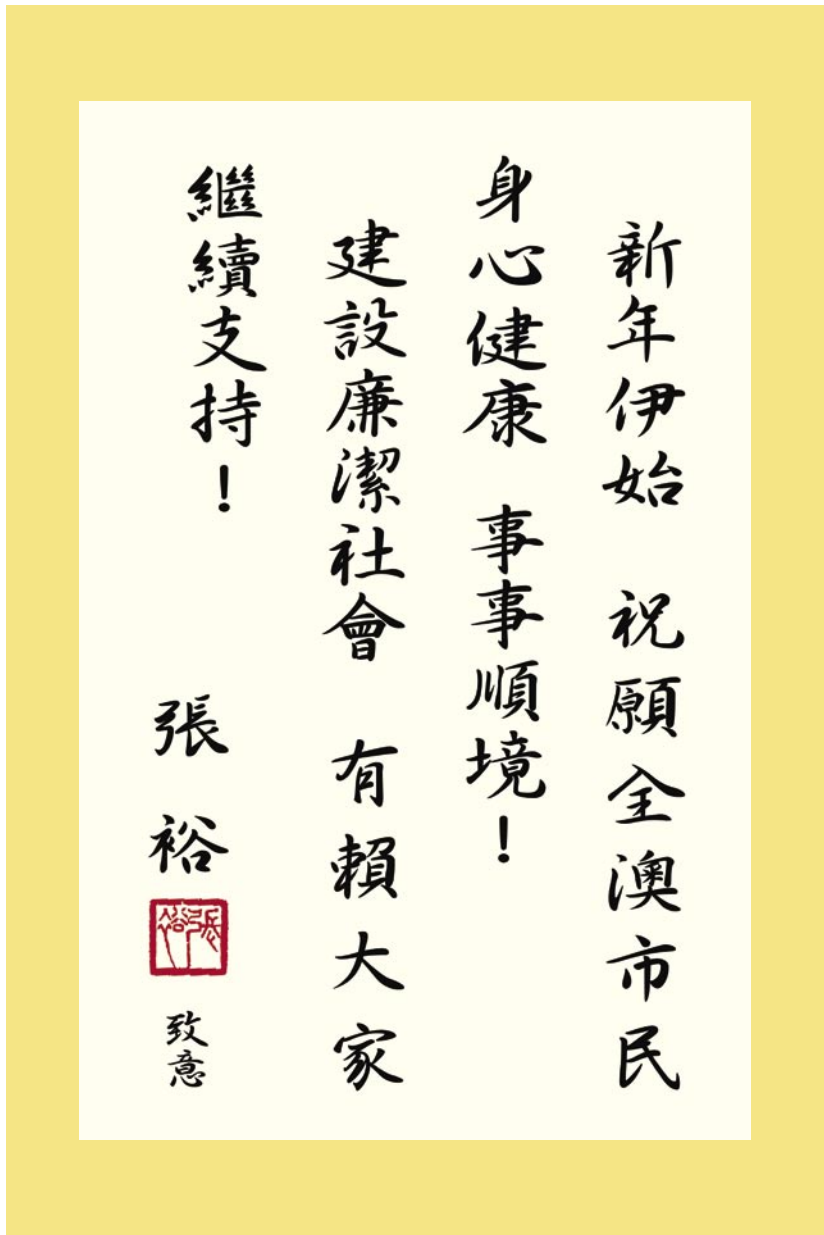 新年伊始　祝願全澳市民
身心健康　事事順境！
建設廉潔社會　有賴大家
繼續支持！
張裕
張裕
致意